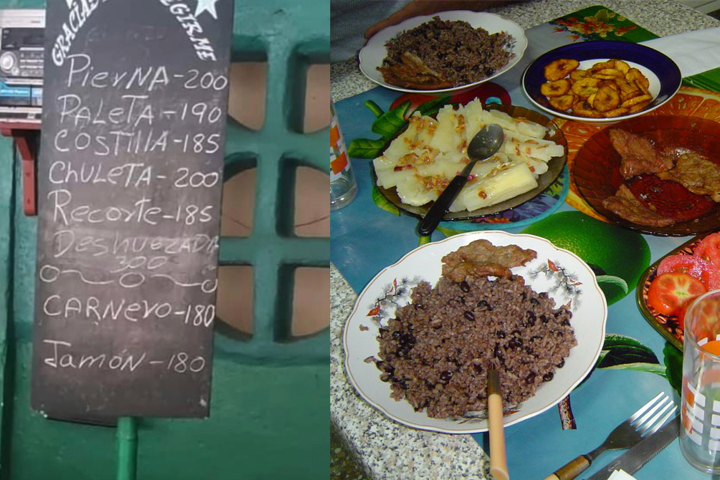 GRACIAS
EGIRME
PierNA-200
PALeTA-190
COSTILLA-185
CHULETA-200
Recorte-185
DesHuezADA
300
CARNeVO-180
JamóN-180